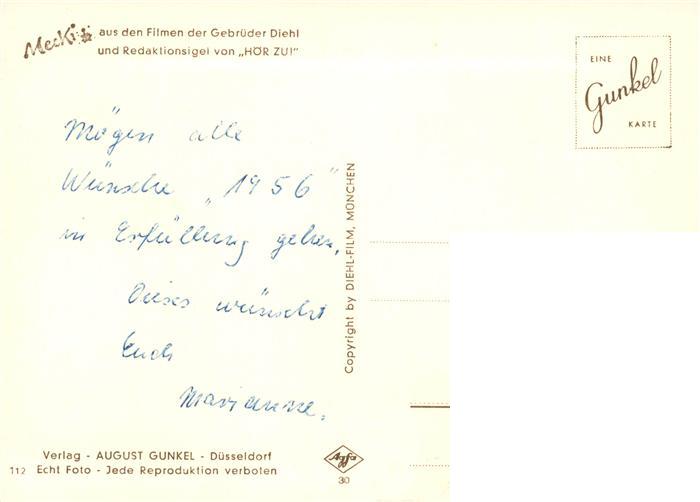 Mecki aus den Filmen der Gebrüder Diehl
und Redaktionsigel von „HÖR ZU!"
EINE
Gunkel
KARTE
Mögen alle
Wünsche „1956"
in Erfüllung gehen,
Dieses wünscht
Euch
Marianne.
Copyright by DIEHL-FILM, MÜNCHEN
Verlag - AUGUST GUNKEL - Düsseldorf
112 Echt Foto - Jede Reproduktion verboten
Agfa
30